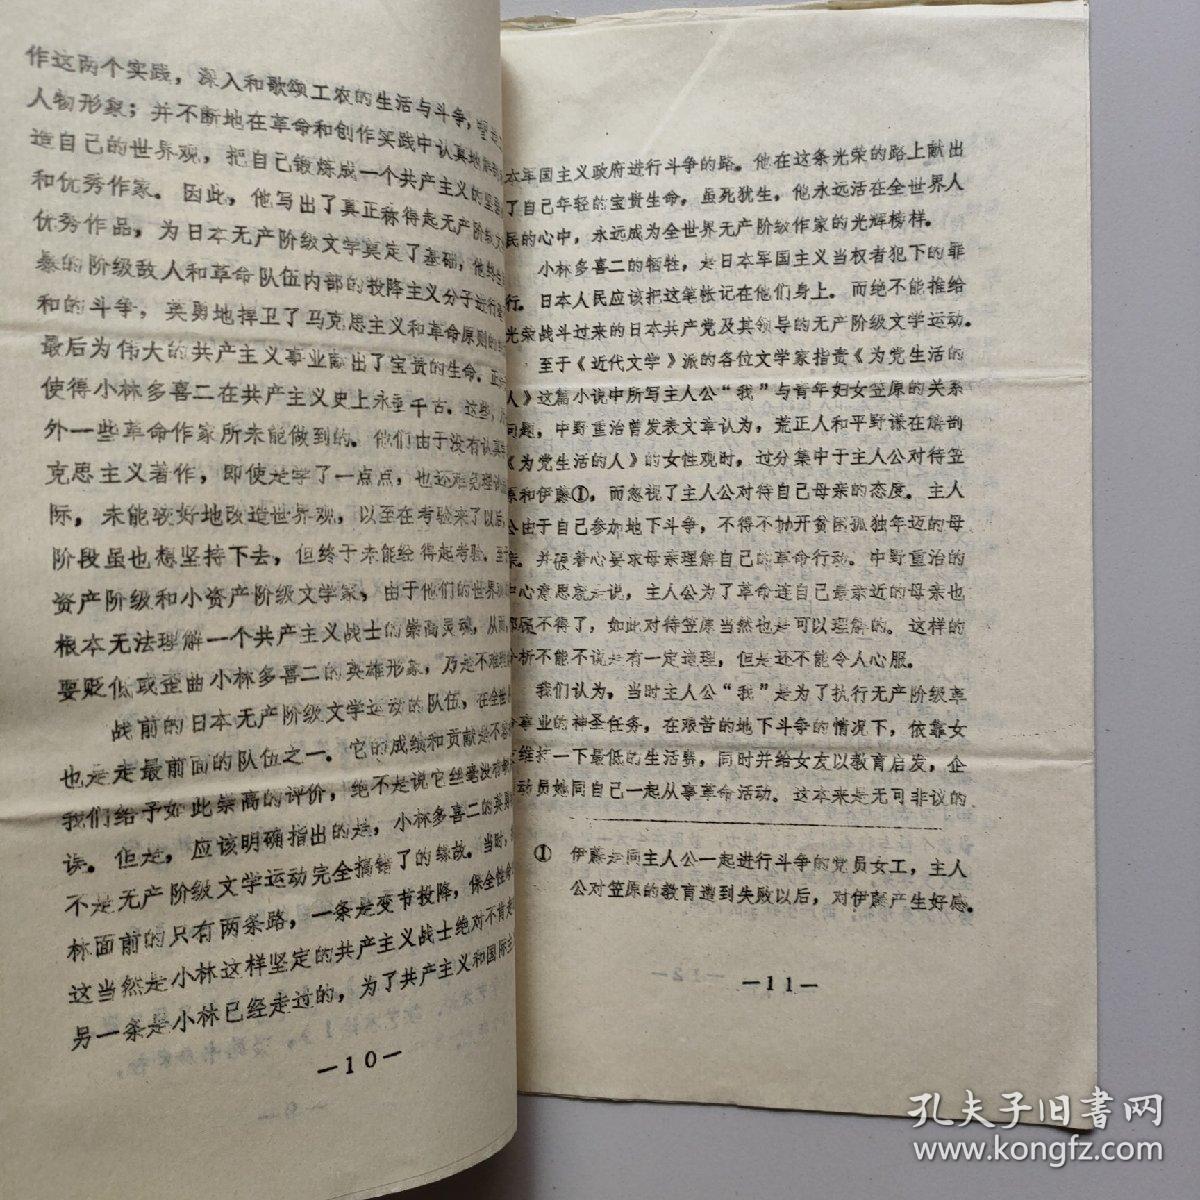 作这两个实践，深入和歌颂工农的生活与斗争，
人物形象；并不断地在革命和创作实践中认真地
造自己的世界观，把自己锻炼成一个共产主义的坚
和优秀作家。因此，他写出了真正称得起无产阶级文
优秀作品，为日本无产阶级文学奠定了基础，他终
暴的阶级敌人和革命队伍内部的投降主义分子进行
和的斗争，英勇地捍卫了马克思主义和革命原则的
最后为伟大的共产主义事业献出了宝贵的生命。正
使得小林多喜二在共产主义史上永垂千古。这些，
外一些革命作家所未能做到的。他们由于没有认真
克思主义著作，即使是学了一点点，也还难克理
际，未能较好地改造世界观，以至在考验来了以后
阶段虽也想坚持下去，但终于未能经得起考验。至
资产阶级和小资产阶级文学家，由于他们的世界
根本无法理解一个共产主义战士的崇高灵魂，从而
要贬低或歪曲小林多喜二的英雄形象，乃是不难
战前的日本无产阶级文学运动的队伍，在全世
也是走最前面的队伍之一。它的成绩和贡献是不
我们给予如此崇高的评价，绝不是说它丝毫没有
误。但是，应该明确指出的是，小林多喜二的英
不是无产阶级文学运动完全搞错了的缘故。当时，
林面前的只有两条路，一条是变节投降，保全性命
这当然是小林这样坚定的共产主义战士绝对不肯走
另一条是小林已经走过的，为了共产主义和国际主
—10—
本军国主义政府进行斗争的路。他在这条光荣的路上献出
了自己年轻的宝贵生命，虽死犹生，他永远活在全世界人
民的心中，永远成为全世界无产阶级作家的光辉榜样。
小林多喜二的牺牲，是日本军国主义当权者犯下的罪
行。日本人民应该把这笔帐记在他们身上。而绝不能推给
光荣战斗过来的日本共产党及其领导的无产阶级文学运动。
至于《近代文学》派的各位文学家指责《为党生活的
人》这篇小说中所写主人公“我”与青年妇女笠原的关系
问题，中野重治曾发表文章认为，荒正人和平野谦在解剖
《为党生活的人》的女性观时，过分集中于主人公对待笠
原和伊藤①，而忽视了主人公对待自己母亲的态度。主人
公由于自己参加地下斗争，不得不抛开贫困孤独年迈的母
亲。并硬着心要求母亲理解自己的革命行动。中野重治的
中心意思就是说，主人公为了革命连自己最亲近的母亲也
都顾不得了，如此对待笠原当然也是可以理解的。这样的
分析不能不说是有一定道理，但是还不能令人心服。
我们认为，当时主人公“我”是为了执行无产阶级革
命事业的神圣任务，在艰苦的地下斗争的情况下，依靠女
维持一下最低的生活费，同时并给女友以教育启发，企
动员她同自己一起从事革命活动。这本来是无可非议的
① 伊藤是同主人公一起进行斗争的党员女工，主人
公对笠原的教育遭到失败以后，对伊藤产生好感。
—11—
孔夫子旧书网
www.kongfz.com